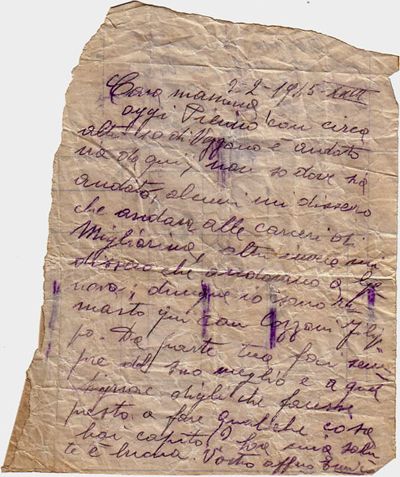 2-2 1945 XXIII
Cara mamma
oggi Pierino con circa
altri 20 di Vezzano è andato
via da qui, non so dove sia
andato, alcuni mi dissero
che andava alle carceri di
Migliarina, altri invece mi
dissero che andranno a Ge
nova; dunque io sono ri
masto qui con Cozzani
po. Da parte tua fai sem
pre del tuo meglio e a quel
signore digli che facesse
presto a fare qualche cosa
hai capito? La mia salu
te è buona. Vostro aff.mo